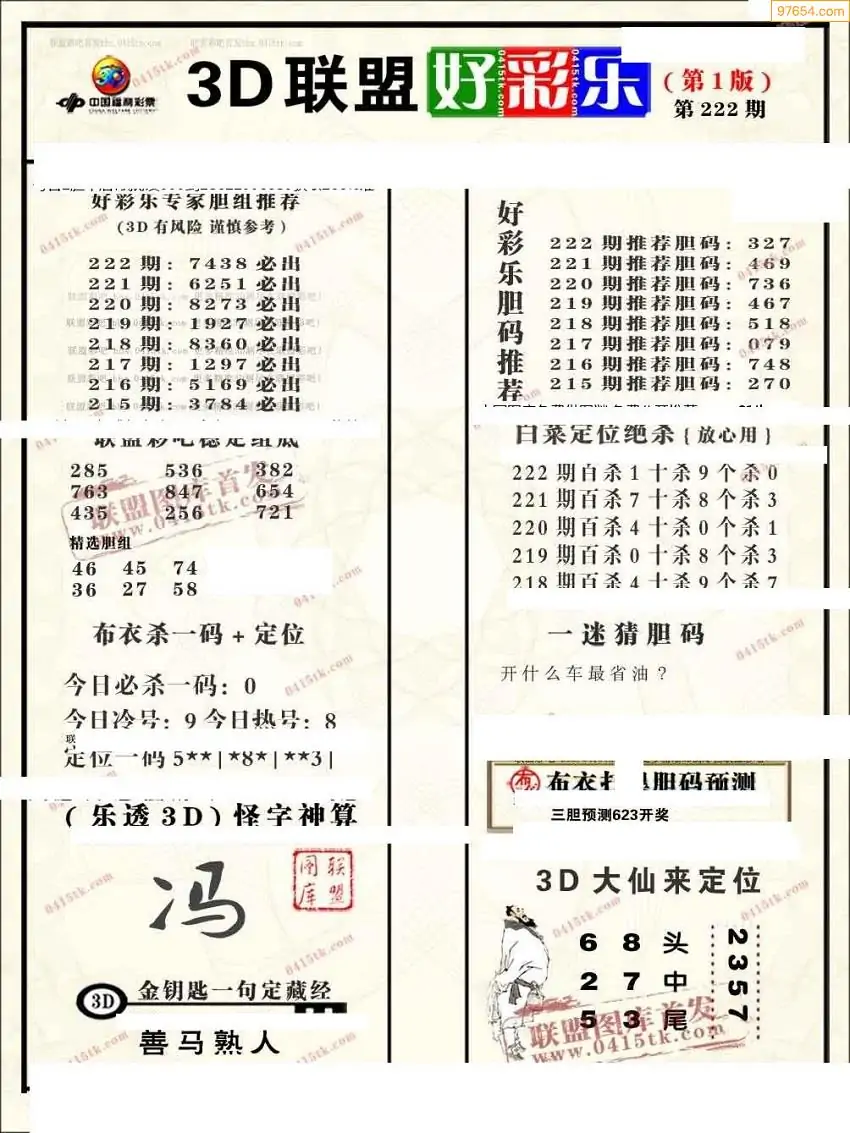 97654.com
中国福利彩票
CHINA WELFARE LOTTERY
3D联盟好彩乐
0415tk.com 0415tk.com 0415tk.com
(第1版)
第222期
好彩乐专家胆组推荐
(3D有风险 谨慎参考)
222期: 7438必出
221期: 6251必出
220期: 8273必出
219期: 1927必出
218期: 8360必出
217期: 1297必出
216期: 5169必出
215期: 3784必出
联盟彩吧稳定组底
285 536 382
763 847 654
435 256 721
精选胆组
46 45 74
36 27 58
布衣杀一码+定位
今日必杀一码: 0
今日冷号: 9 今日热号: 8
定位一码 5**|*8*|**3|
(乐透3D)怪字神算
冯
联盟图库
3D 金钥匙一句定藏经
善马熟人
好彩乐胆码推荐
222期推荐胆码: 327
221期推荐胆码: 469
220期推荐胆码: 736
219期推荐胆码: 467
218期推荐胆码: 518
217期推荐胆码: 079
216期推荐胆码: 748
215期推荐胆码: 270
白菜定位绝杀{放心用}
222期百杀1十杀9个杀0
221期百杀7十杀8个杀3
220期百杀4十杀0个杀1
219期百杀0十杀8个杀3
218期百杀4十杀9个杀7
一迷猜胆码
开什么车最省油?
布衣 胆码预测
三胆预测623开奖
3D大仙来定位
6 8 头
2 7 中
5 3 尾
2357
联盟图库首发
www.0415tk.com